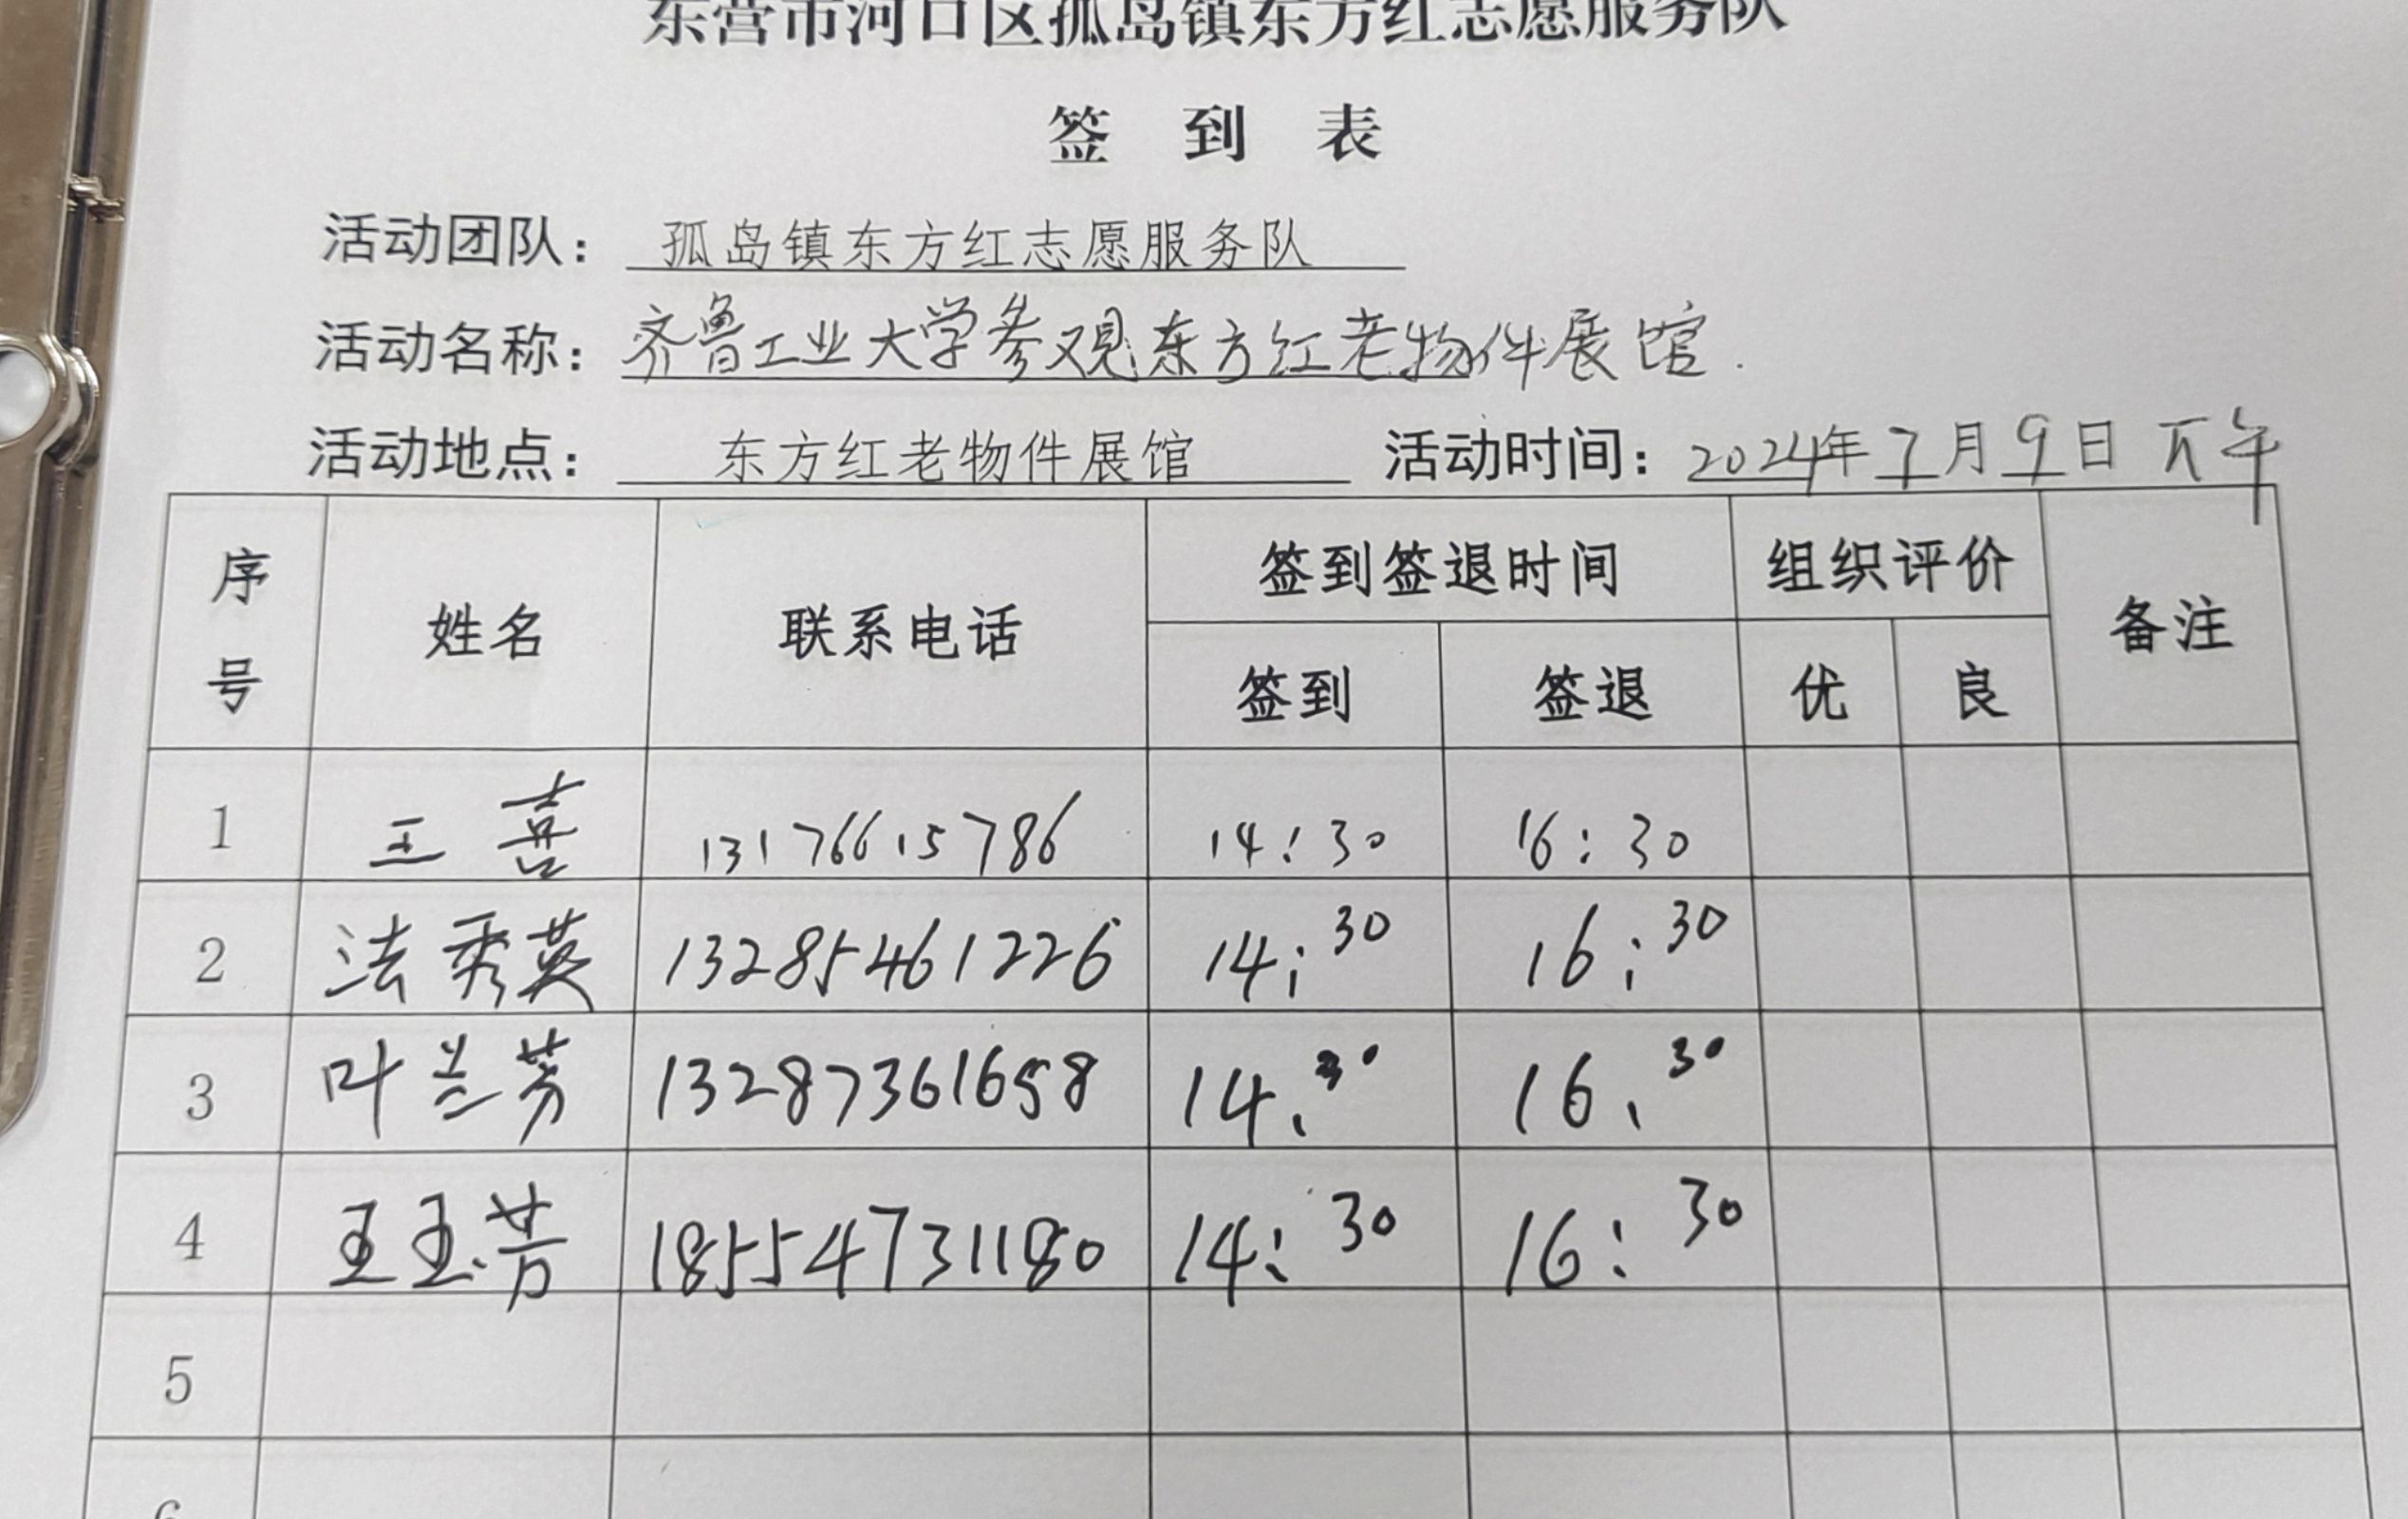 东营市河口区孤岛镇东方红志愿服务队
签 到 表
活动团队：孤岛镇东方红志愿服务队
活动名称：齐鲁工业大学参观东方红老物件展馆.
活动地点：东方红老物件展馆 活动时间：2024年7月9日下午
序号 姓名 联系电话 签到签退时间 组织评价 备注
签到 签退 优 良
1 王喜 13176615786 14:30 16:30
2 法秀英 13285461226 14:30 16:30
3 叶兰芳 13287361658 14.30 16.30
4 王玉芳 18554731180 14:30 16:30
5
6